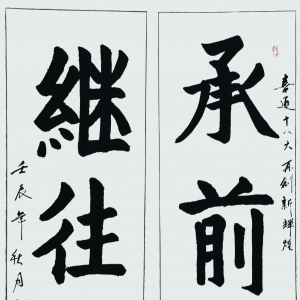 喜迎十八大 再创新辉煌
承前
继往
壬辰年 秋月